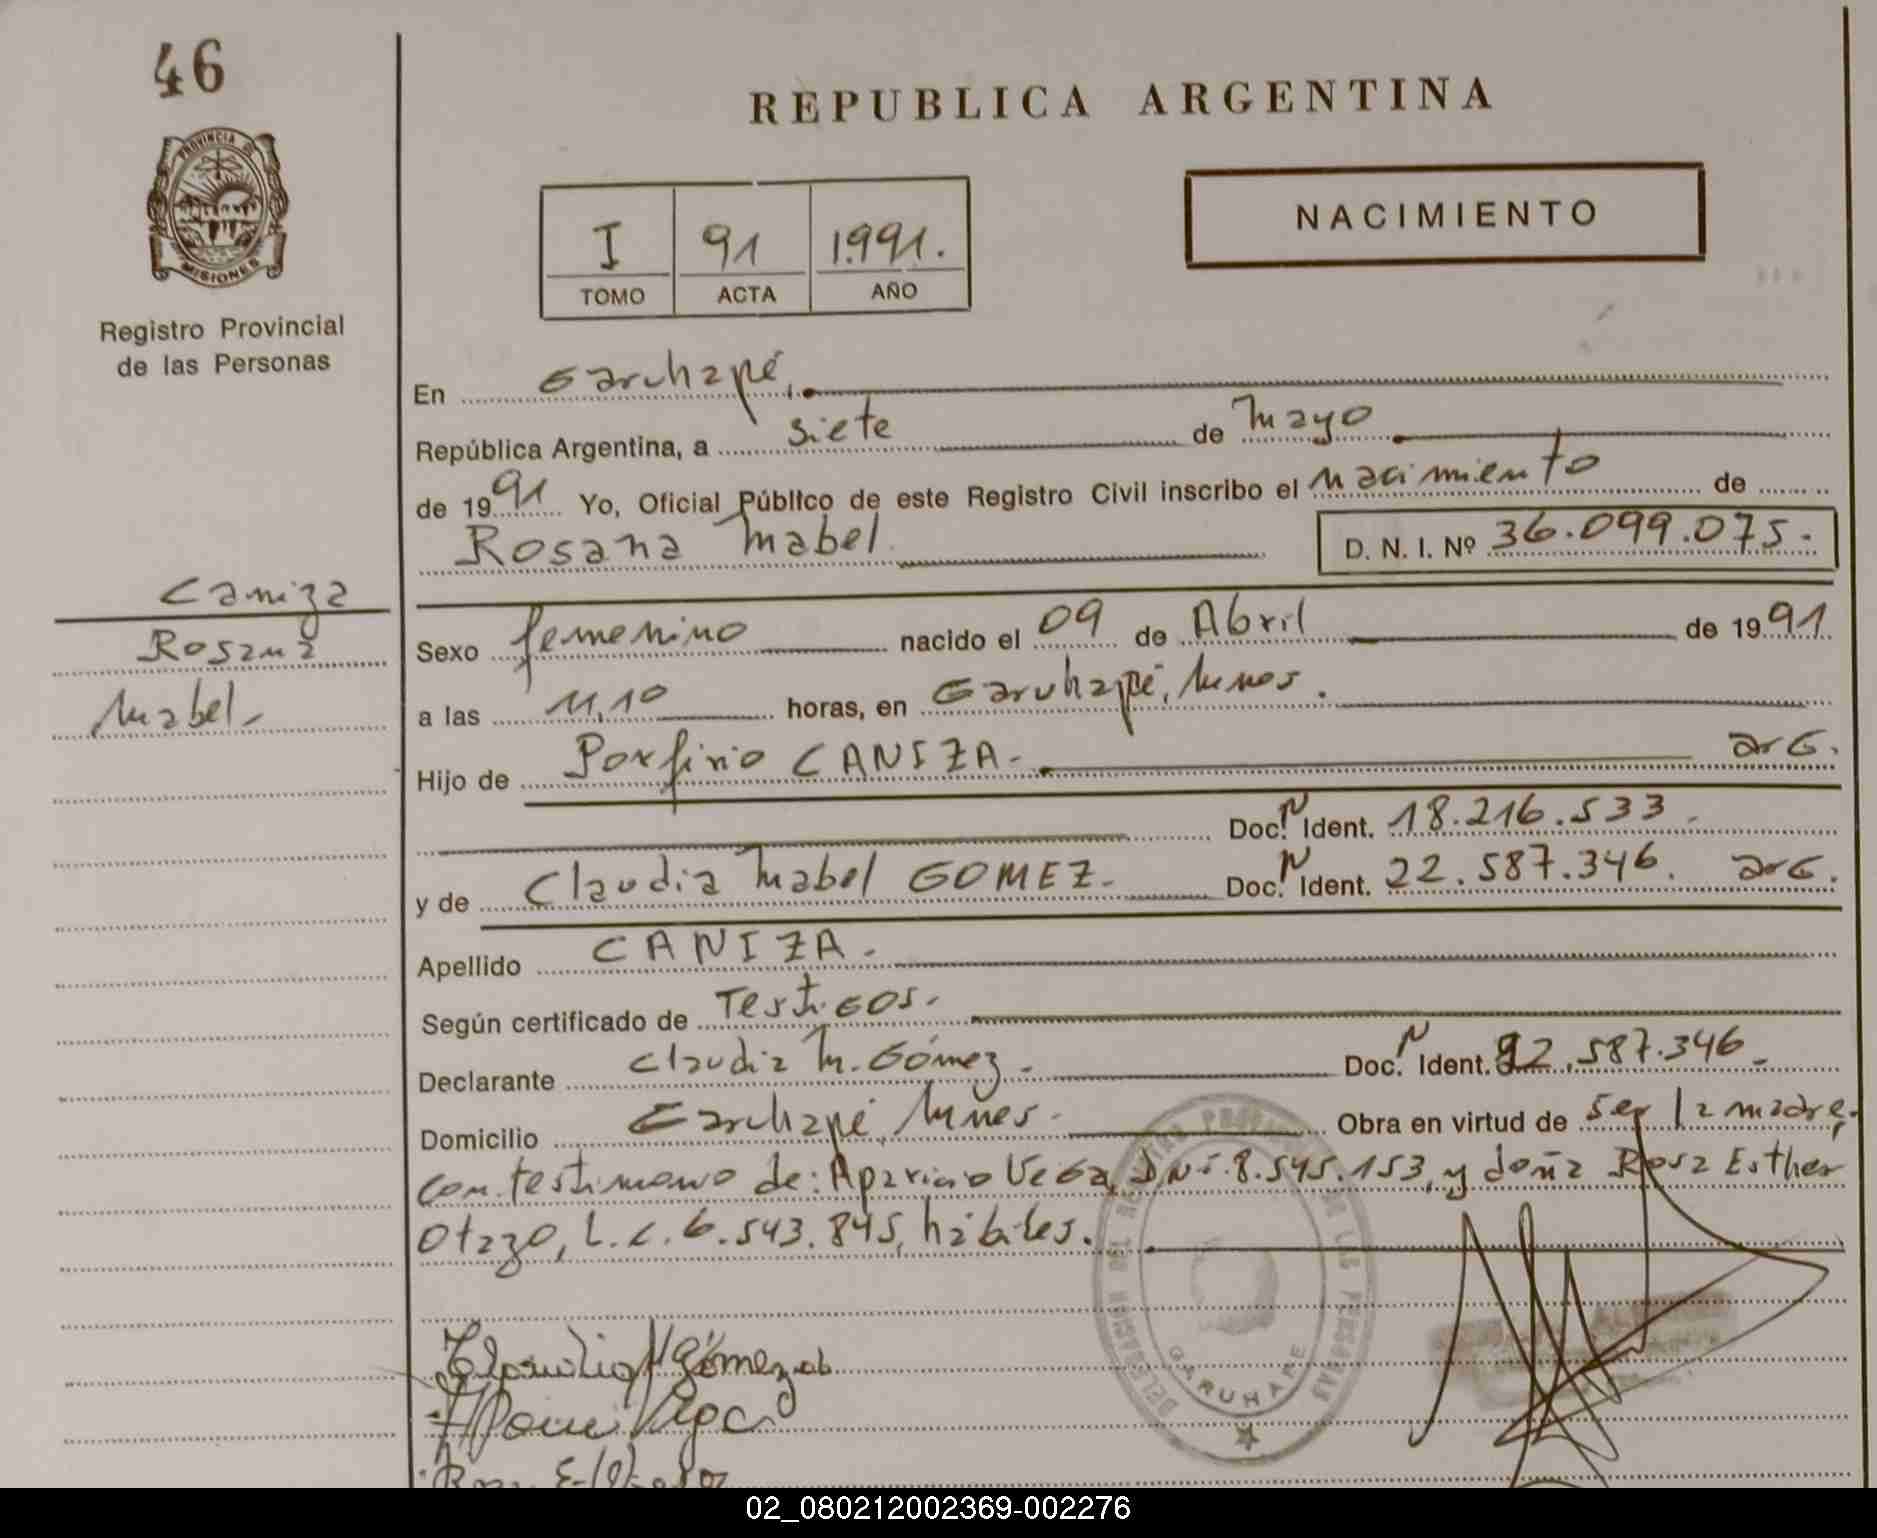 46
PROVINCIA DE
MISIONES
Registro Provincial
de las Personas
Caniza
Rosana
Mabel.-
REPUBLICA ARGENTINA
I 91 1.991.
TOMO ACTA AÑO
NACIMIENTO
En Garuhapé,
República Argentina, a siete de Mayo
de 1991 Yo, Oficial Público de este Registro Civil inscribo el nacimiento de
Rosana Mabel D. N. I. Nº 36.099.075.-
Sexo femenino nacido el 09 de Abril de 1991
a las 11,10 horas, en Garuhapé, Mnes.
Hijo de Porfirio CANIZA.- arG.
Doc. N Ident. 18.216.533.
y de Claudia Mabel GOMEZ.- Doc. N Ident. 22.587.346. arG.
Apellido CANIZA.-
Según certificado de Testigos.
Declarante Claudia M. Gómez.- Doc. N Ident. 22.587.346.-
Domicilio Garuhapé, Mnes.- Obra en virtud de ser la madre,
con testimonio de: Aparicio Vega, DNI. 8.545.153, y doña Rosa Esther
Otazo, L.C. 6.543.845, hábiles.
DELEGACION DE REGISTRO PROVINCIAL DE LAS PERSONAS
GARUHAPE
Claudia M Gómez
02_080212002369-002276